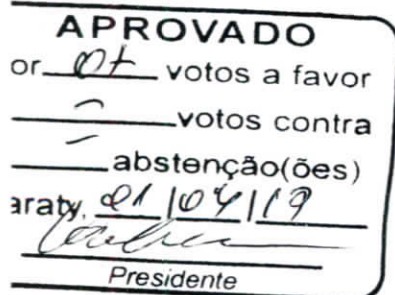 APROVADO
or 07 votos a favor
- votos contra
- abstenção(ões)
araty, 01/04/19
Presidente